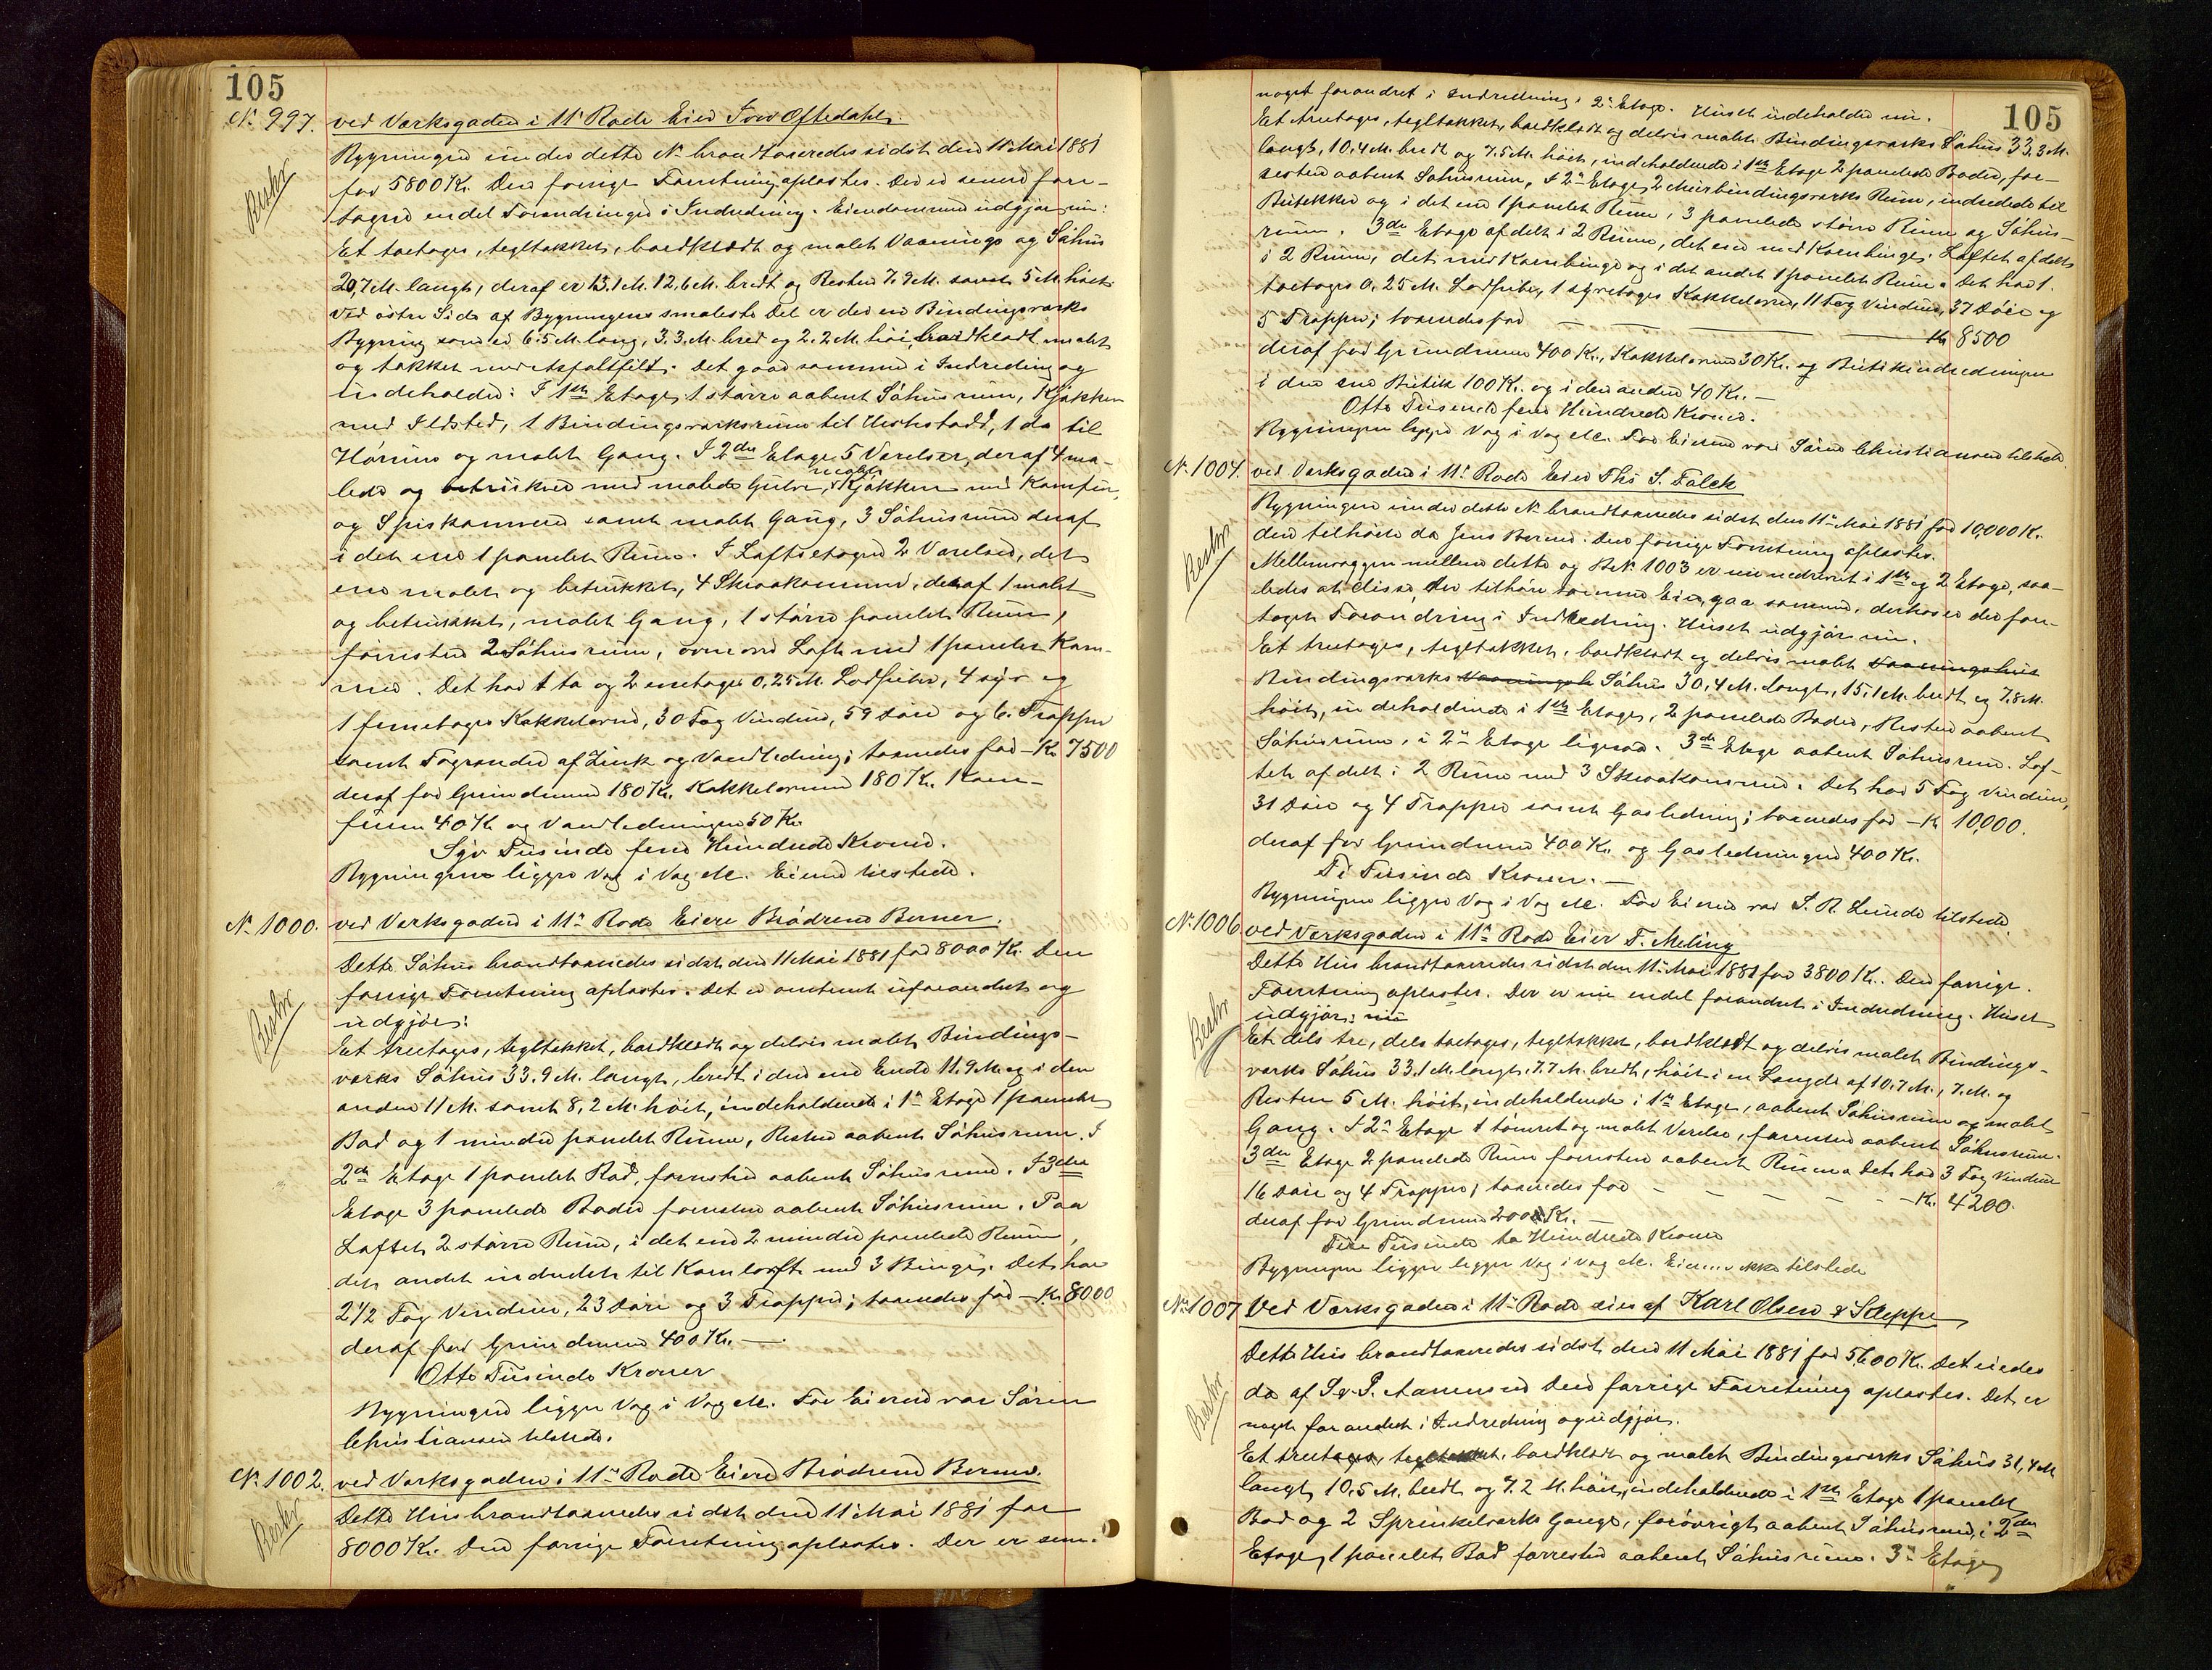 105
No. 997. ved Værksgaden i 11te Rode Eier Tore Oftedahl.
Bygningen under dette No brandtaxeredes sidst den 11te Mai 1881
for 5800 Kr. Den forrige Forretning oplæstes. Der er senere fore-
tagne endel Forandringer i Indredning. Eiendommen udgjør nu:
Et toetages, tegltækket, bordklædt og malet Vaanings og Søhus
20,7 M. langt, deraf er 13.1 M. 12,6 M. bredt og Resten 7.9 M. samt 5 M. høit.
Ved østre Side af Bygningens smaleste Del er der en Bindingsværks
Bygning som er 6.5 M. lang, 3.3. M. bred og 2.2 M. høi, bordklædt malet
og tækket med Asfaltfilt. Det gaar sammen i Indredning og
indeholder: I 1ste Etage, 1 større aabent Søhusrum, Kjøkken
med Ildsted, 1 Bindingsværksrum til Verksted, 1 do til
Hønse og malet Gang. I 2den Etage 5 Værelser, deraf 4 ma-
lede og betrukne med malede Gulve, malet Kjøkken med Komfur,
og Spiskammer samt malet Gang, 3 Søhusrum deraf
i det ene 1 panelet Rum. I Loftsetagen 2 Værelser, det
ene malet og betrukket, 4 Skraakammere, deraf 1 malet
og betrukket, malet Gang, 1 større panelet Rum,
forresten 2 Søhusrum, øverste Loft med 1 panelet Kam-
mer. Det har 1 to og 2 enetages 0,25 M. Lodpiber, 4 syv og
1 femetages Kakkelovne, 30 Fag Vinduer, 59 Døre og 6. Trapper
samt Tagrender af Zink og Vandledning; taxeredes for – Kr. 7500
deraf for Grundmure 180 Kr. Kakkelovnene 180 Kr. Kom-
furen 40 Kr og Vandledningen 50 Kr.
Syv Tusinde fem Hundrede Kroner.
Bygningerne ligge Væg i Væg etc. Eieren tilstede.
No. 1000. ved Værksgaden i 11te Rode Eiere Brødrene Berner.
Bestr
Dette Søhus brandtaxeredes sidst den 11 Mai 1881 for 8000 Kr. Den
forrige Forretning oplæstes. Det er omtrent uforandret og
udgjør:
Et treetages, tegltækket, bordklædt og delvis malet Bindings-
værks Søhus 33.9 M. langt, bredt i den ene Ende 11.9 M. og i den
anden 11 M. samt 8,2 M. høit, indeholdende i 1te Etage 1 panelet
Bod og 1 mindre panelet Rum, Resten aabent Søhusrum. I
2de Etage 1 panelet Bod, forresten aabent Søhusrum. I 3die
Etage 3 panelede Boder forresten aabent Søhusrum. Paa
Loftet 2 større Rum, i det ene 2 mindre panelede Rum,
det andet indredet til Kornloft med 3 Binger. Det har
2 1/2 Fag Vinduer, 23 Døre og 3 Trapper; taxeredes for – Kr. 8000
deraf for Grundmure 400 Kr. —.
Otte Tusinde Kroner
Bygningen ligger Væg i Væg etc. For Eieren var Søren
Christiansen tilstede.
No. 1002. ved Værksgaden i 11te Rode Eiere Brødrene Berner.
Bestr
Dette Hus brandtaxeredes sidst den 11 Mai 1881 for
8000 Kr. Den forrige Forretning oplæstes. Der er sene-
105
noget forandret i Indredning i 2. Etage. Huset indeholder nu.
Et treetages, tegltækket, bordklædt og delvis malet Bindingsværks Søhus 33,3 M.
langt, 10.4 M. bredt og 7.5 M. høit, indeholdende i 1ste Etage 2 panelede Boder, for-
resten aabent Søhusrum, I 2den Etage, 2 Murbindingsværks Rum, indredede til
Butikker og i det ene 1 panelet Rum, 3 panelede større Rum og Søhus-
rum. 3die Etage afdelt i 2 Rum, det ene med Kornbinger. Loftet afdelt
i 2 Rum, det med Kornbinge og i det andet 1 panelet Rum. Det har 1.
toetages 0,25 M. Lodpibe, 1 syvetages Kakkelovn, 11 Fag Vinduer, 37 Døre og
5 Trapper; taxeredes for — — Kr. 8500
deraf for Grundmure 400 Kr., Kakkelovnen 30 Kr. og Butikindredningen
i den ene Butik 100 Kr. og i den anden 40 Kr. —
Otte Tusinde fem Hundrede Kroner.
Bygningen ligger Væg i Væg etc. For Eieren var Søren Christiansen tilstede.
No. 1004. ved Værksgaden i 11te Rode Eier Ths S. Falck
Bestr
Bygningen under dette No brandtaxeredes sidst den 11te Mai 1881 for 10,000 Kr.
den tilhørte da Jens Berner. Den forrige Forretning oplæstes.
Mellemvæggen mellem dette og No. 1003 er nu nedrevet i 1ste og 2 Etage, saa-
ledes at disse, der tilhøre samme Eier, gaa sammen, derhos er der fore-
taget Forandring i Indredning. Huset udgjør nu.
Et treetages, tegltækket, bordklædt og delvis malet Vaaningshus
Bindingsværks Søhus 30,4 M. langt, 15,1 M. bredt og 7.8 M.
høit, indeholdende i 1ste Etage, 2 panelede Boder, Resten aabent
Søhusrum, i 2den Etage ligesaa. 3die Etage aabent Søhusrum. Lof-
tet afdelt i 2 Rum med 3 Skraakammere. Det har 5 Fag Vinduer,
31 Døre og 4 Trapper samt Gasledning; taxeredes for – Kr 10,000.
deraf for Grundmure 400 Kr. og Gasledningen 400 Kr.
Ti Tusinde Kroner. —
Bygningen ligger Væg i Væg etc. For Eieren var S. R. Lunde tilstede.
No. 1006 ved Værksgaden i 11te Rode Eier T. Meling
Bestr
Dette Hus brandtaxeredes sidst den 11te Mai 1881 for 3800 Kr. Den forrige.
Forretning oplæstes. Der er nu endel forandret i Indredning. Huset
udgjør: nu
Et dels tre, dels toetages, tegltækket, bordklædt og delvis malet Bindings-
værks Søhus 33.1 M. langt, 7.7 M. bredt, høit i en Længde af 10.7 M., 7. M. og
Resten 5 M. høit, indeholdende i 1te Etage, aabent Søhusrum og malet
Gang. I 2den Etage 1 tømret og malet Værelse, forresten aabent Søhusrum.
3die Etage 2 panelede Rum forresten aabent Rum. Det har 3 Fag Vinduer
16 Døre og 4 Trapper; taxeredes for – – – – – Kr. 4200.
deraf for Grundmure 200 Kr. —
Fire Tusinde to Hundrede Kroner
Bygningen ligger ligger Væg i Væg etc. Eieren ikke tilstede
No. 1007 Ved Værksgaden i 11te Rode eies af Karl Olsen & Kleppe
Bestr
Dette Hus brandtaxeredes sidst den 11 Mai 1881 for 5600 Kr. Det eiedes
da af S. & P. Aanensen Den forrige Forretning oplæstes. Det er
noget forandret i Indredning og udgjør.
Et treetages, tegltækket, bordklædt og malet Bindingsværks Søhus 31,4 M
langt, 10,5 M. bredt og 7.2 M. høit, indeholdende i 1ste Etage 1 panelet
Bod og 2 Sprinkelværks Gange, forøvrigt aabent Søhusrum, i 2den
Etage, 1 panelet Bod forresten aabent Søhusrum. 3die Etage